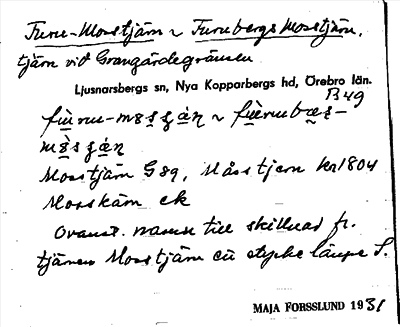 Furu-Mosstjärn ~ Furubergs Mosstjärn,
tjärn vid Grangärdegränsen
Ljusnarsbergs sn, Nya Kopparbergs hd, Örebro län.
B49
Mosstjärn G89, Måsstjern kn1804
Mosskärn ek
Ovanst. namn till skillnad fr.
tjärnen Mosstjärn ett stycke längre S.
MAJA FORSSLUND 1931